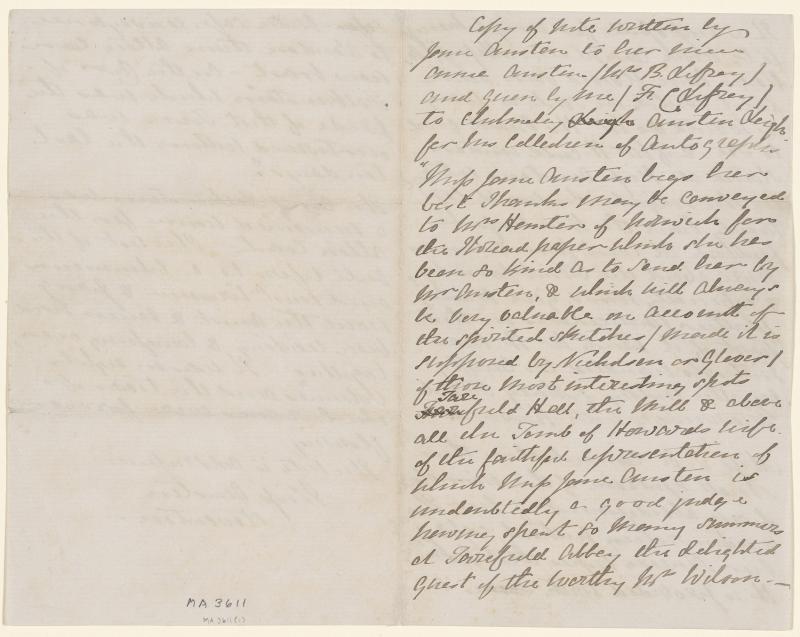 Copy of Note written by
Jane Austen to her niece
Anna Austen (Mrs B. Lefroy)
and given by me (F. C Lefroy)
to Cholmeley Austen Leigh
for his Collection of Autographs
"Miss Jane Austen begs her
best Thanks may be conveyed
to Mrs Hunter of Norwich for
the Thread paper which she has
been so kind as to send her by
Mr Austen, & which will always
be very valuable on account of
the spirited sketches (made it is
supposed by Nicholson or Glover)
of those most interesting spots
Tarefield Hall, the Mill & above
all the Tomb of Howards wife
of the faithful representation of
which Miss Jane Austen is
undoubtedly a good judge
having spent so many summers
at Tarefield Abbey the delighted
guest of the worthy Mrs Wilson. —
MA 3611
MA 3611(1)